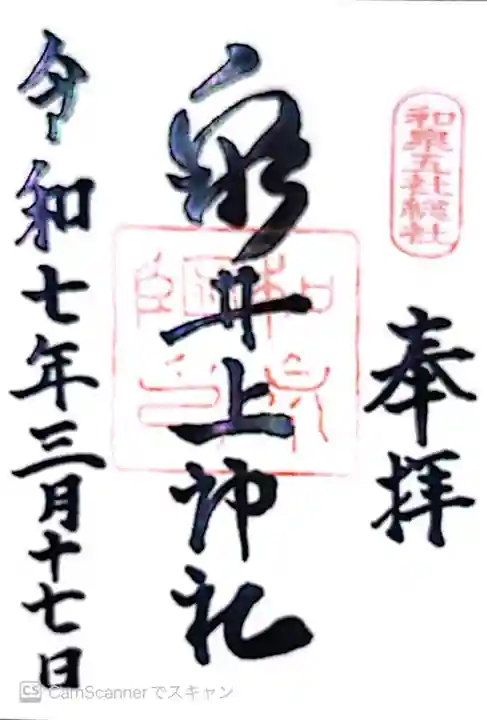 和泉五社総社
奉拝
泉井上神社
令和七年三月十七日
CS CamScannerでスキャン